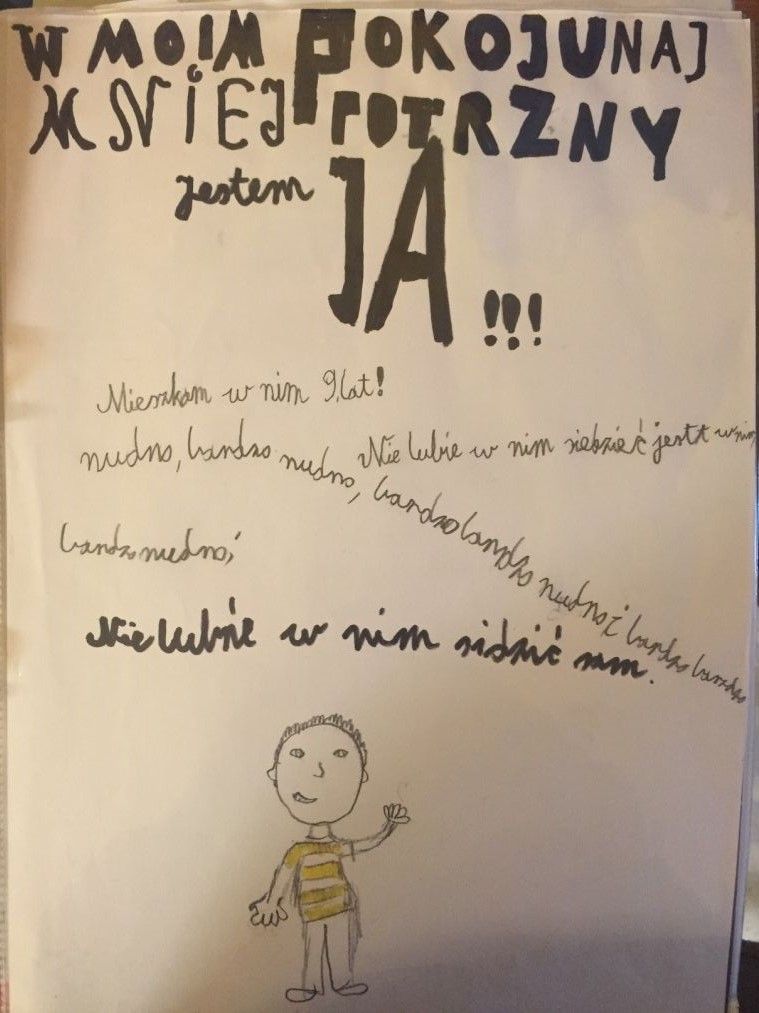 W MOIM POKOJU NAJ
MNIEJ POTRZNY
jestem JA !!!
Mieszkam w nim 9 lat!
Nie lubie w nim siedzieć jest w nim
nudno, bardzo nudno, bardzo bardzo nudno i bardzo bardzo
bardzo nudno i
Nie lubie w nim sidzić sam.